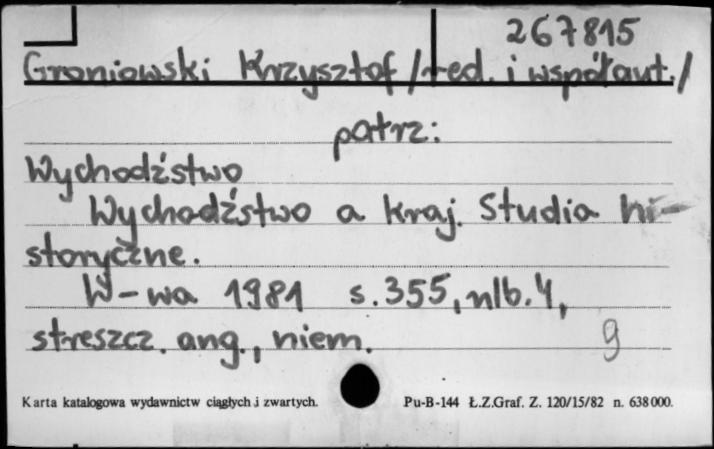 267815
Groniowski Krzysztof /red. i współaut./
patrz:
Wychodźstwo
Wychodźstwo a kraj. Studia hi-
storyczne.
W-wa 1981 s.355, nlb.4,
streszcz. ang., niem.
9
Karta katalogowa wydawnictw ciągłych i zwartych. Pu-B-144 Ł.Z.Graf. Z. 120/15/82 n. 638000.